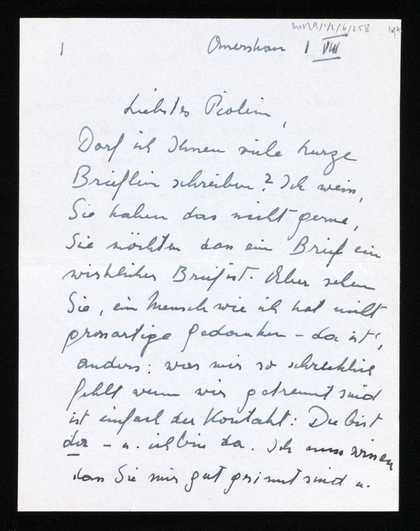 1
Amersham 1 VIII
Liebstes Piolin,
Darf ich Ihnen viele kurze
Brieflin schreiben? Ich weiss,
Sie haben das nicht gerne,
Sie möchten dass ein Brief ein
wirklicher Brief ist. Aber sehen
Sie, ein Mensch wie ich hat nicht
grossartige Gedanken – da ist's
anders: was mir so schrecklich
fehlt wenn wir getrennt sind
ist einfach der Kontakt: Du bist
da – u. ich bin da. Ich muss wissen
dass Sie mir gut gesinnt sind u.